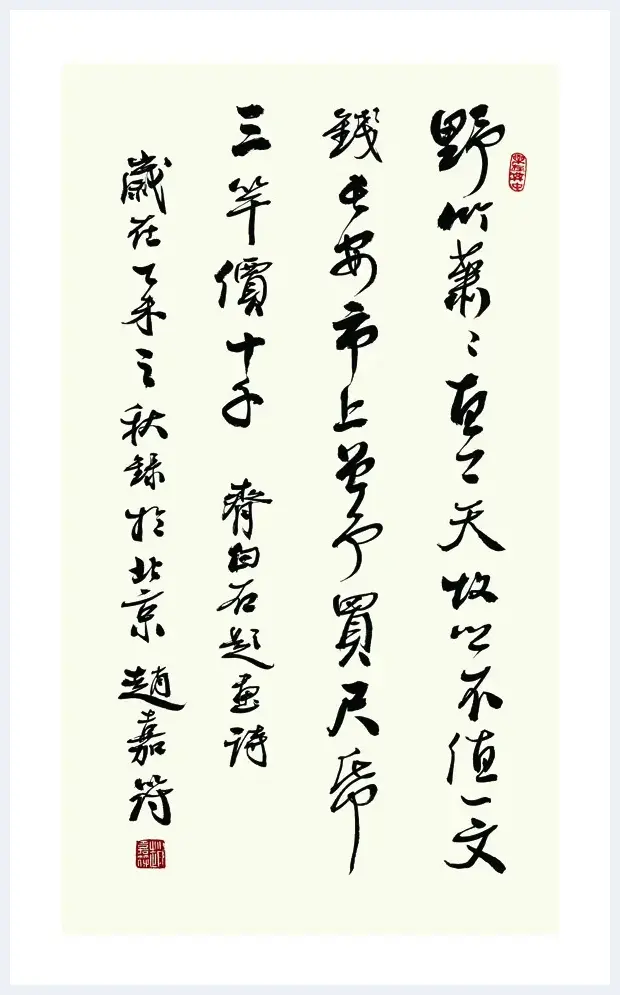 野竹蕭〻直上天故山不值一文
錢長安市上曾予買尺帋
三竿價十千 齊白石題畫詩
歲在乙未之秋錄於北京 趙嘉符